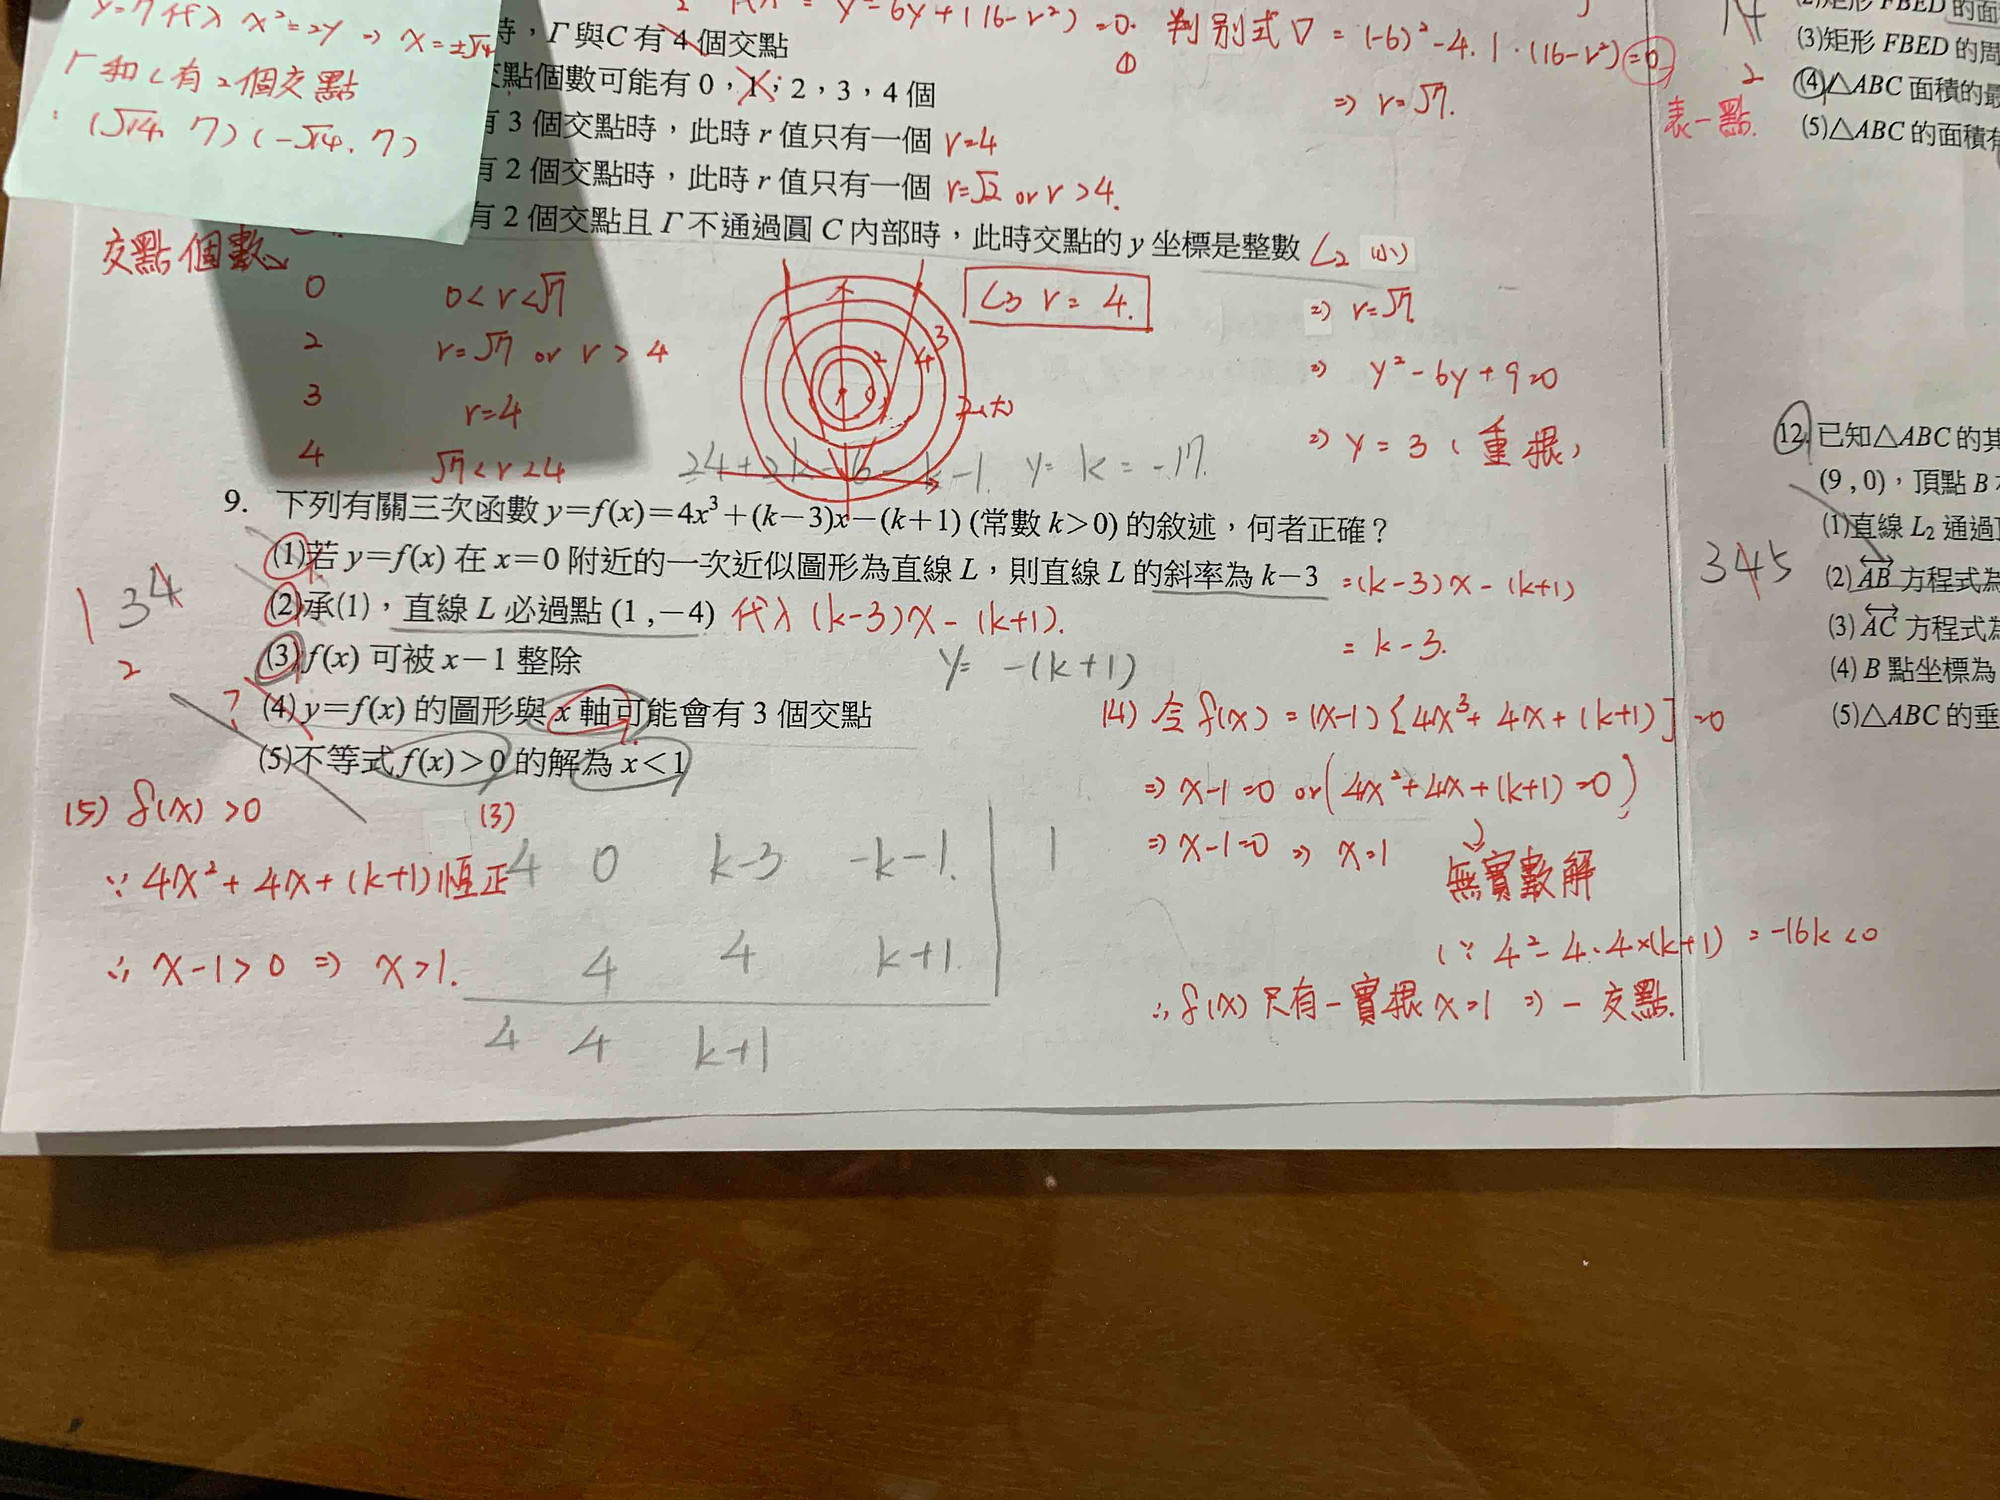 y=7代入 x²=2y ⇒ x=±√14
Γ和C有2個交點
(√14, 7)(-√14, 7)
時，Γ與C有4個交點
交點個數可能有0，1，2，3，4個
有3個交點時，此時r值只有一個 r=4
有2個交點時，此時r值只有一個 r=√2 or r>4.
有2個交點且Γ不通過圓C內部時，此時交點的y坐標是整數 L2 (小)
y²-6y+(16-r²)=0. 判別式▽=(-6)²-4.1.(16-r²)=0
①
⇒ r=√7.
表一點.
交點個數
0 0<r<√7
2 r=√7 or r>4
3 r=4
4 √7<r<4
L3 r=4.
3
2
4
2(大)
⇒ r=√7.
⇒ y²-6y+9=0
⇒ y=3 (重根)
24+2k-6-k-1. y= k=-17.
9. 下列有關三次函數y=f(x)=4x³+(k-3)x-(k+1) (常數k>0) 的敘述，何者正確？
(1)若y=f(x)在x=0附近的一次近似圖形為直線L，則直線L的斜率為k-3 =(k-3)x-(k+1)
(2)承(1)，直線L必過點(1,-4) 代入(k-3)x-(k+1).
= k-3.
(3)f(x)可被x-1整除
y= -(k+1)
(4)y=f(x)的圖形與x軸可能會有3個交點
(5)不等式f(x)>0的解為x<1
134
2
?
(4) 令f(x)=(x-1)[4x³+4x+(k+1)]=0
⇒ x-1=0 or(4x²+4x+(k+1)=0)
⇒ x-1=0 ⇒ x=1
無實數解
(∵ 4²-4.4×(k+1)=-16k<0
∴f(x)只有一實根x=1 ⇒ 一交點.
(5) f(x)>0
∵4x²+4x+(k+1)恆正
∴ x-1>0 ⇒ x>1.
(3)
4 0 k-3 -k-1. 1
4 4 k+1.
4 4 k+1
14
2
(2)矩形FBED的面
(3)矩形FBED的周
(4)△ABC面積的最
(5)△ABC的面積有
345
12. 已知△ABC的其
(9,0)，頂點B
(1)直線L2通過
(2)AB方程式為
(3)AC方程式為
(4)B點坐標為
(5)△ABC的垂